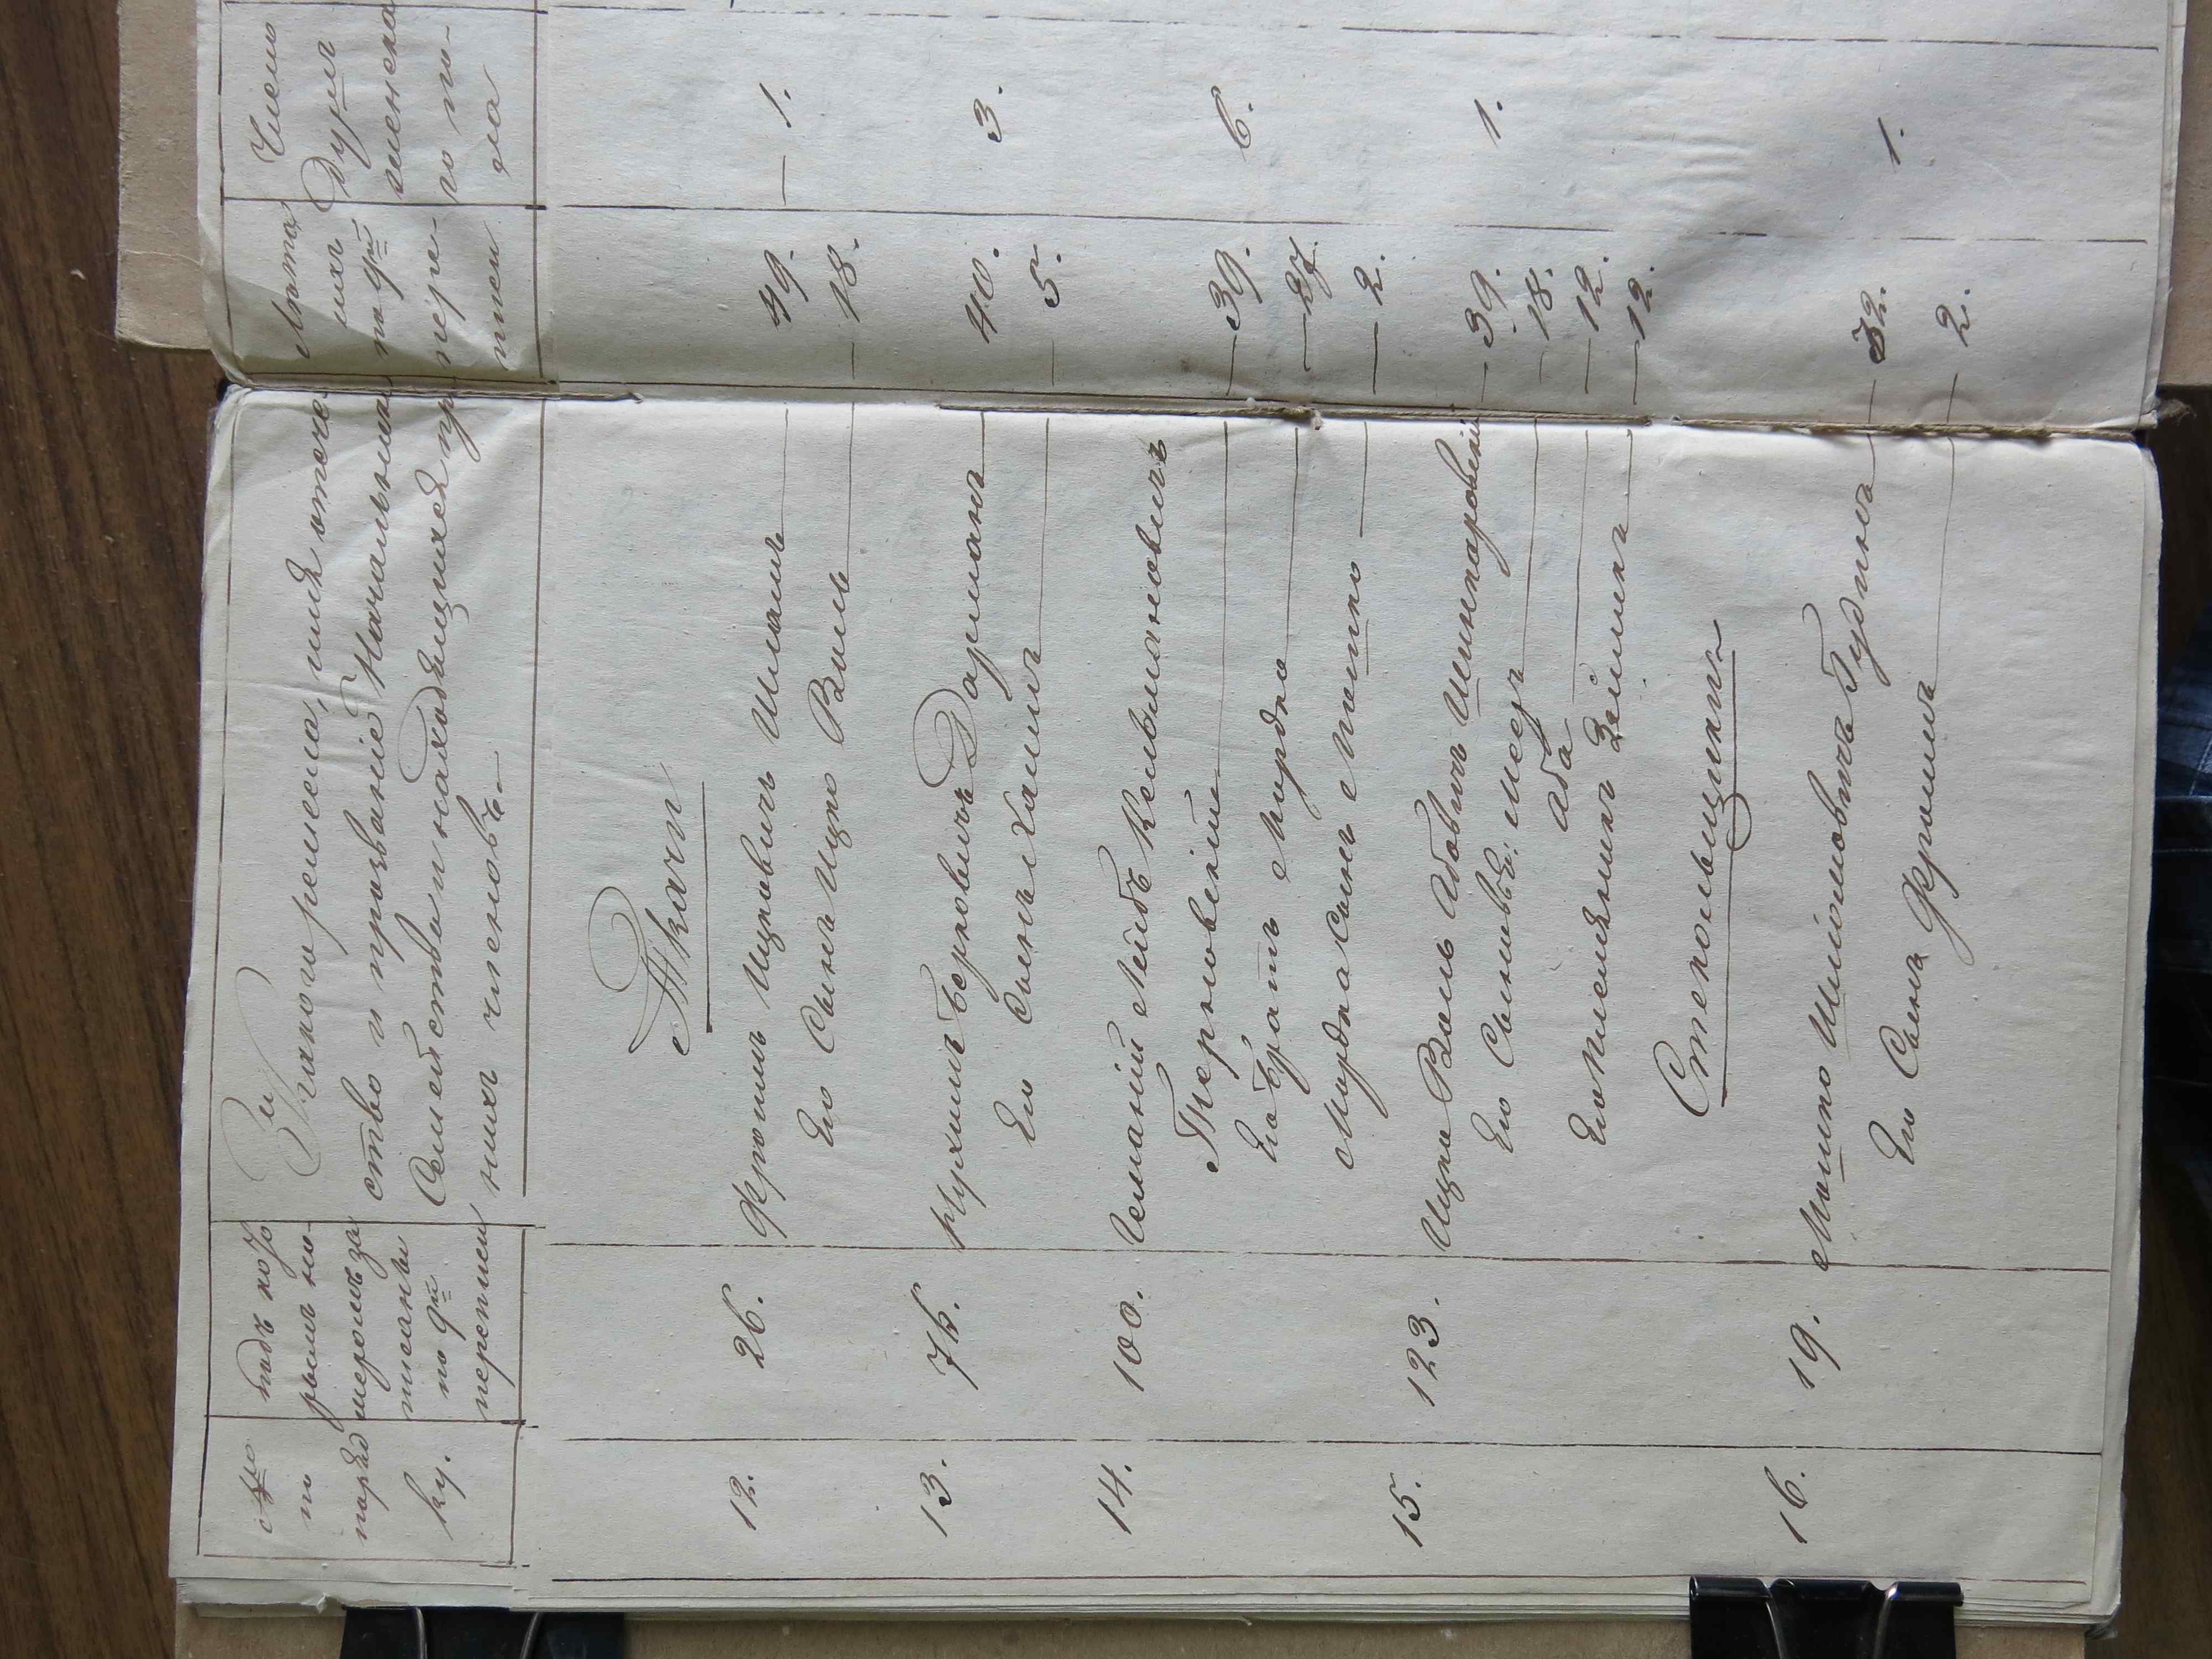 №
по
поряд
ку.
подъ кото
рымъ но-
меромъ за
писаны
по 9й
переписи
Какого ремесла, имя отече
ство и прозваніе Начальника
Семейства и находящихся при
нихъ членовъ.
Лѣта
ихъ
по 9й
пере-
писи
Число
душъ
женска
го по-
ла
Ткачи
12. 26. Фроимъ Ицковичъ Шмамъ 49. 1.
Его Сынъ Ицко Вольъ 18.
13. 76. Нухимъ Берковичъ Дорманъ 40. 3.
Его Сынъ Хаимъ 5.
14. 100. Лейбъ Кельмановичъ
Терновскій 39. 6.
Его Братъ Мордко 27.
Мордка Сынъ Мошко 2.
15. 123. Ицко Воль Абовичъ Шинкаровскій 39. 1.
Его Сыновья: Меер 18.
Аба 12.
Его племянникъ Зейликъ 12.
Стекольщики
16. 19. Мошко Шліомовичъ Гудинъ 32. 1.
Его Сынъ Фроимъ 2.